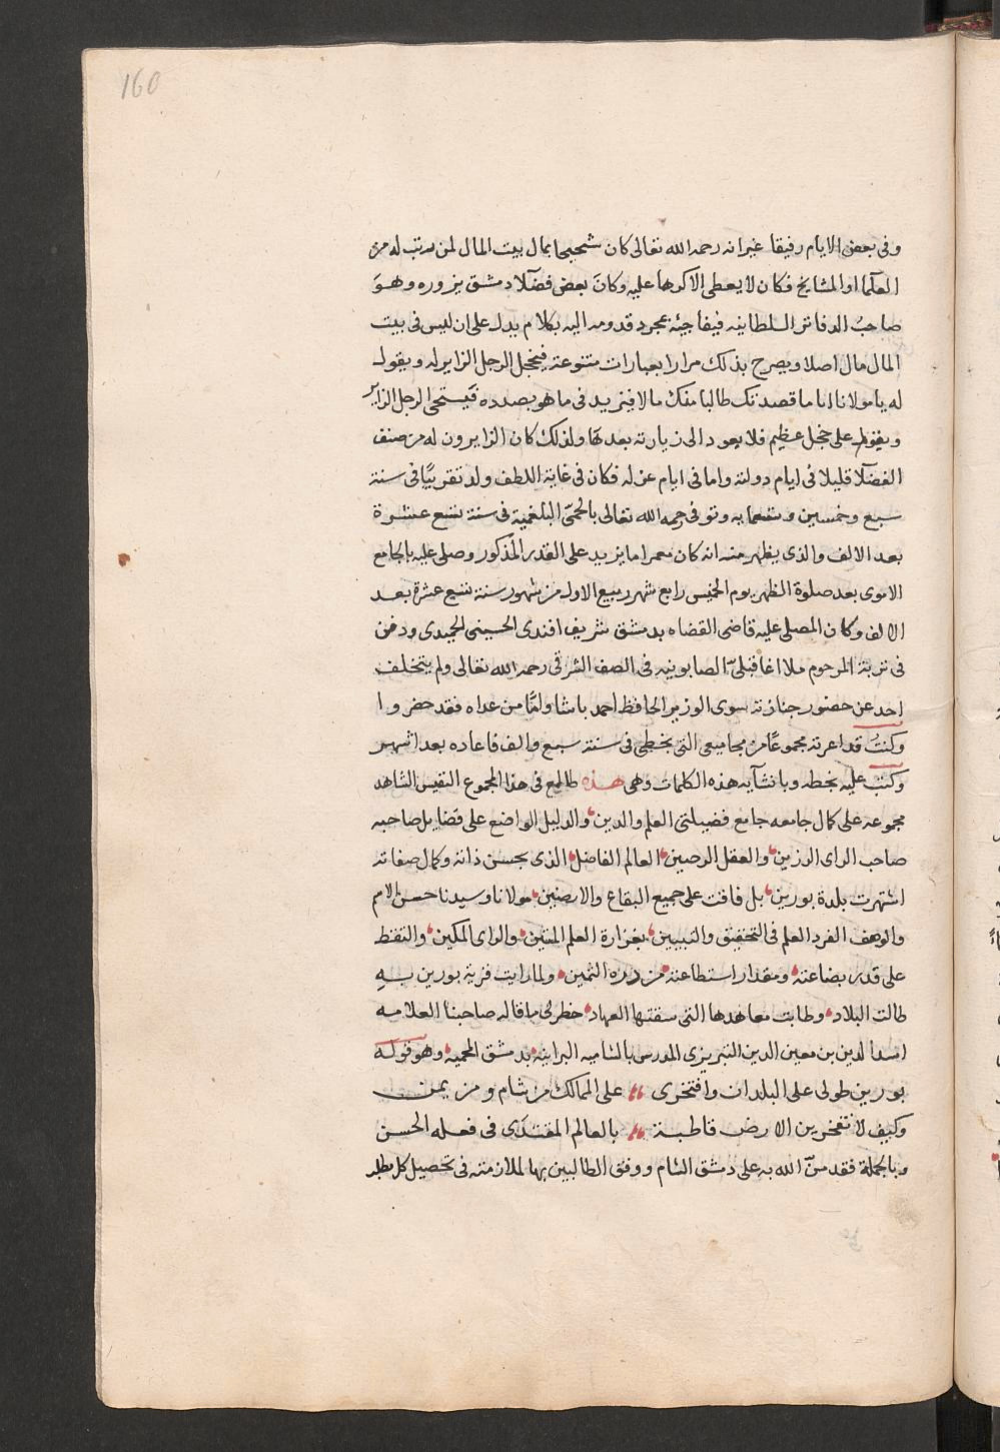 160
وفى بعض الايام رفيقا غير انه رحمه الله تعالى كان شحيحا بمال بيت المال لمن رتب له من
العلما او المشايخ فكان لا يعطى الا كرها عليه وكانَ بعض فضلآ دمشق يزوره وهوَ
صاحبُ الدفاتر السلطانيه فيفاجئه بمجرد قدومه اليه بكلام يدل على ان ليس فى بيت
المال مال اصلا ويصرح بذلك مرارا بعبارات متنوعة فيخجل الرجل الزاير له ويقول
له يا مولانا انا ما قصدتك طالبا منك مالا فيزيد فى ما هو بصدده فيستحى الرجل الزاير
ويقوم على خجل عظيم فلا يعود الى زيارته بعدها ولذلك كان الزايرون له من صنف
الفضلآ قليلا فى ايام دولته واما فى ايام عزله فكان فى غاية اللطف ولد تقريبًا فى سنة
سبع وخمسين وتسعمايه وتوفى رحمه الله تعالى بالحمىّ البلغمية فى سنة تسع عشرة
بعد الالف والذى يظهر منه انه كان معمرا ما يزيد على القدر المذكور وصلى عليه بالجامع
الاموى بعد صلوة الظهر يوم الخميس رابع شهر ربيع الاول من شهور سنة تسع عشرة بعد
الالف وكان المصلى عليه قاضى القضاه بدمشق شريف افندى الحسينى الحميدى ودفن
فى تربة المرحوم ملا اغا قبلىّ الصابونيه فى الصف الشرقى رحمه الله تعالى ولم يتخلف
احد عن حضور جنازته سوى الوزير الحافظ احمد باشا وامّا من عداه فقد حضروا
وكنتُ قد اعرته مجموعًا من مجاميعى التى بخطى فى سنة سبع والف فاعاده بعد اشهر
وكتب عليه بخطه وبانشآيه هذه الكلمات وهى هذه طالع فى هذا المجموع النفيس الشاهد
مجموعه على كمال جامعه جامع فضيلتى العلم والدين والدليل الواضع على فضايل صاحبه
صاحب الراى الرزين والعقل الرصين العالم الفاضل الذى بحسن ذاته وكمال صفاته
اشتهرت بلدة بورين بل فاقت على جميع البقاع والارضين مولانا وسيدنا حسن الاسم
والوصف الفرد العلم فى التحقيق والتبيين بغزارة العلم المتين والراى المكين والتقط
على قدر بضاعته ومقدار استطاعته من درره الثمين ولما رايت قرية بورين به
طالت البلاد وطابت معاهدها التى سقتها العهاد خطر لى ما قاله صاحبنا العلامه
اسد الدين بن معين الدين التبريزى المدرس بالشاميه البرانيه بدمشق المحميه وهو قوله
بورين طولى على البلدان وافتخرى على الممالك من شام ومن يمن
وكيف لا تفخرين الارض قاطبة بالعالم المقتدى فى فعله الحسن
وبالجملة فقد منّ الله به على دمشق الشام ووفق الطالبين بها لملازمته فى تحصيل كل